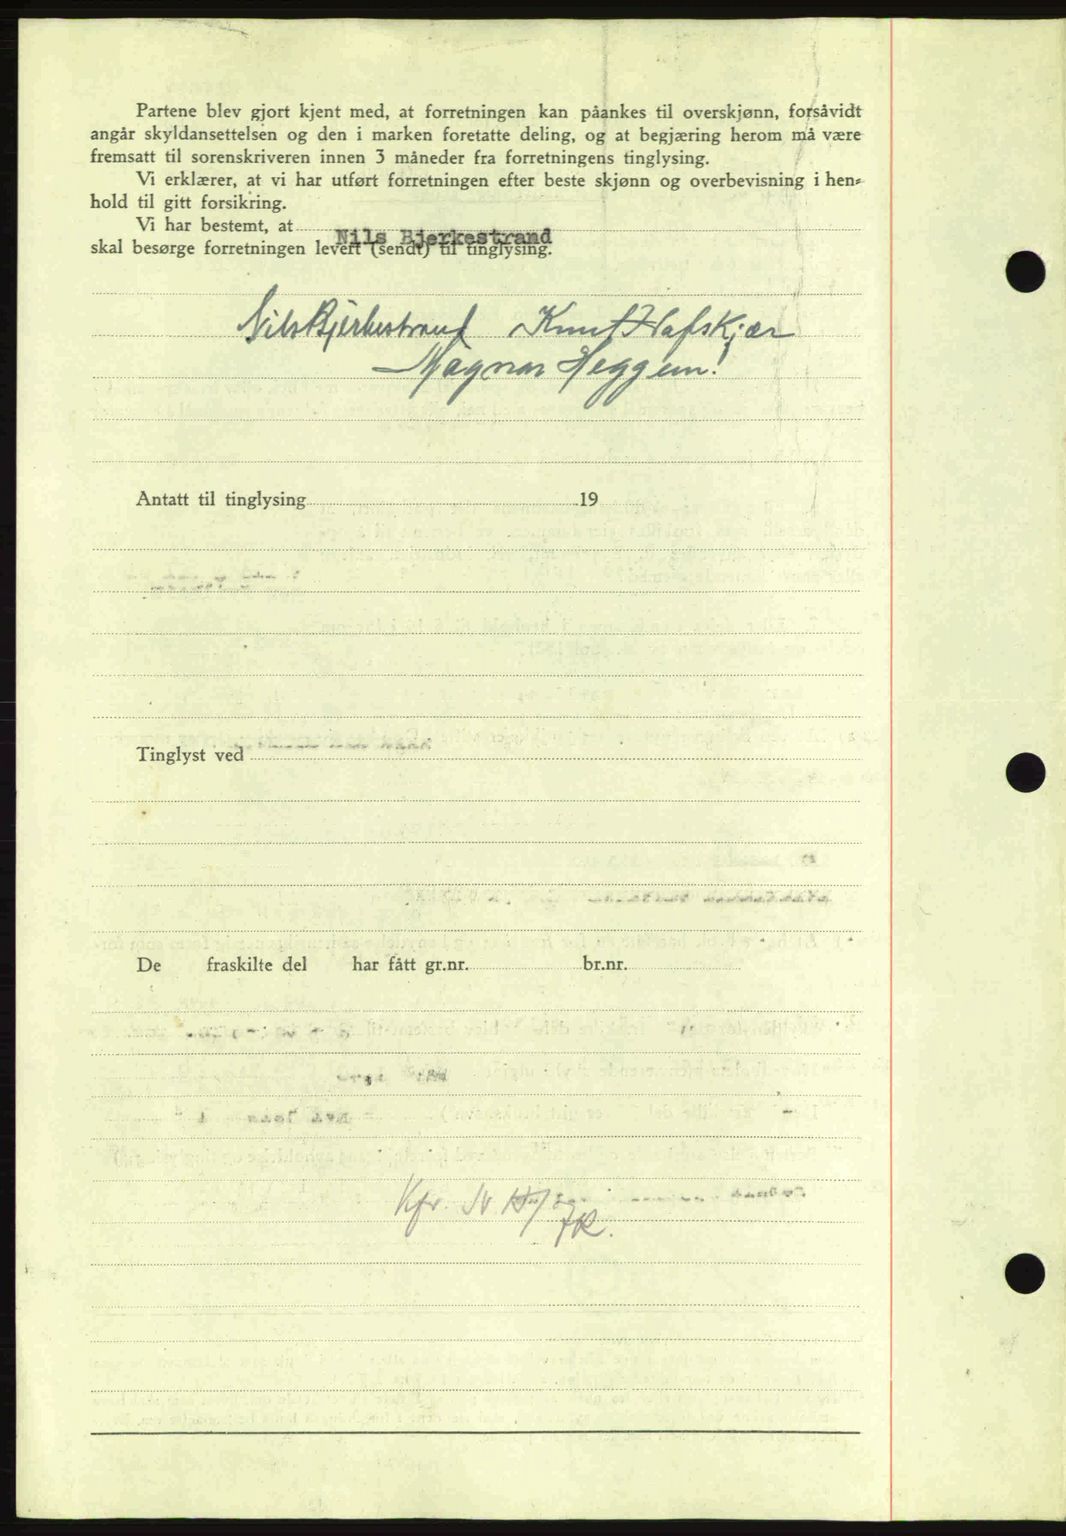 Partene blev gjort kjent med, at forretningen kan påankes til overskjønn, forsåvidt
angår skyldansettelsen og den i marken foretatte deling, og at begjæring herom må være
fremsatt til sorenskriveren innen 3 måneder fra forretningens tinglysing.
Vi erklærer, at vi har utført forretningen efter beste skjønn og overbevisning i hen-
hold til gitt forsikring.
Vi har bestemt, at Nils Bjerkestrand
skal besørge forretningen levert (sendt) til tinglysing.
Nils Bjerkestrand Knut Hafskjær
Magnar Heggem!
Antatt til tinglysing 19
Tinglyst ved
De fraskilte del har fått gr.nr. br.nr.
Kfr.